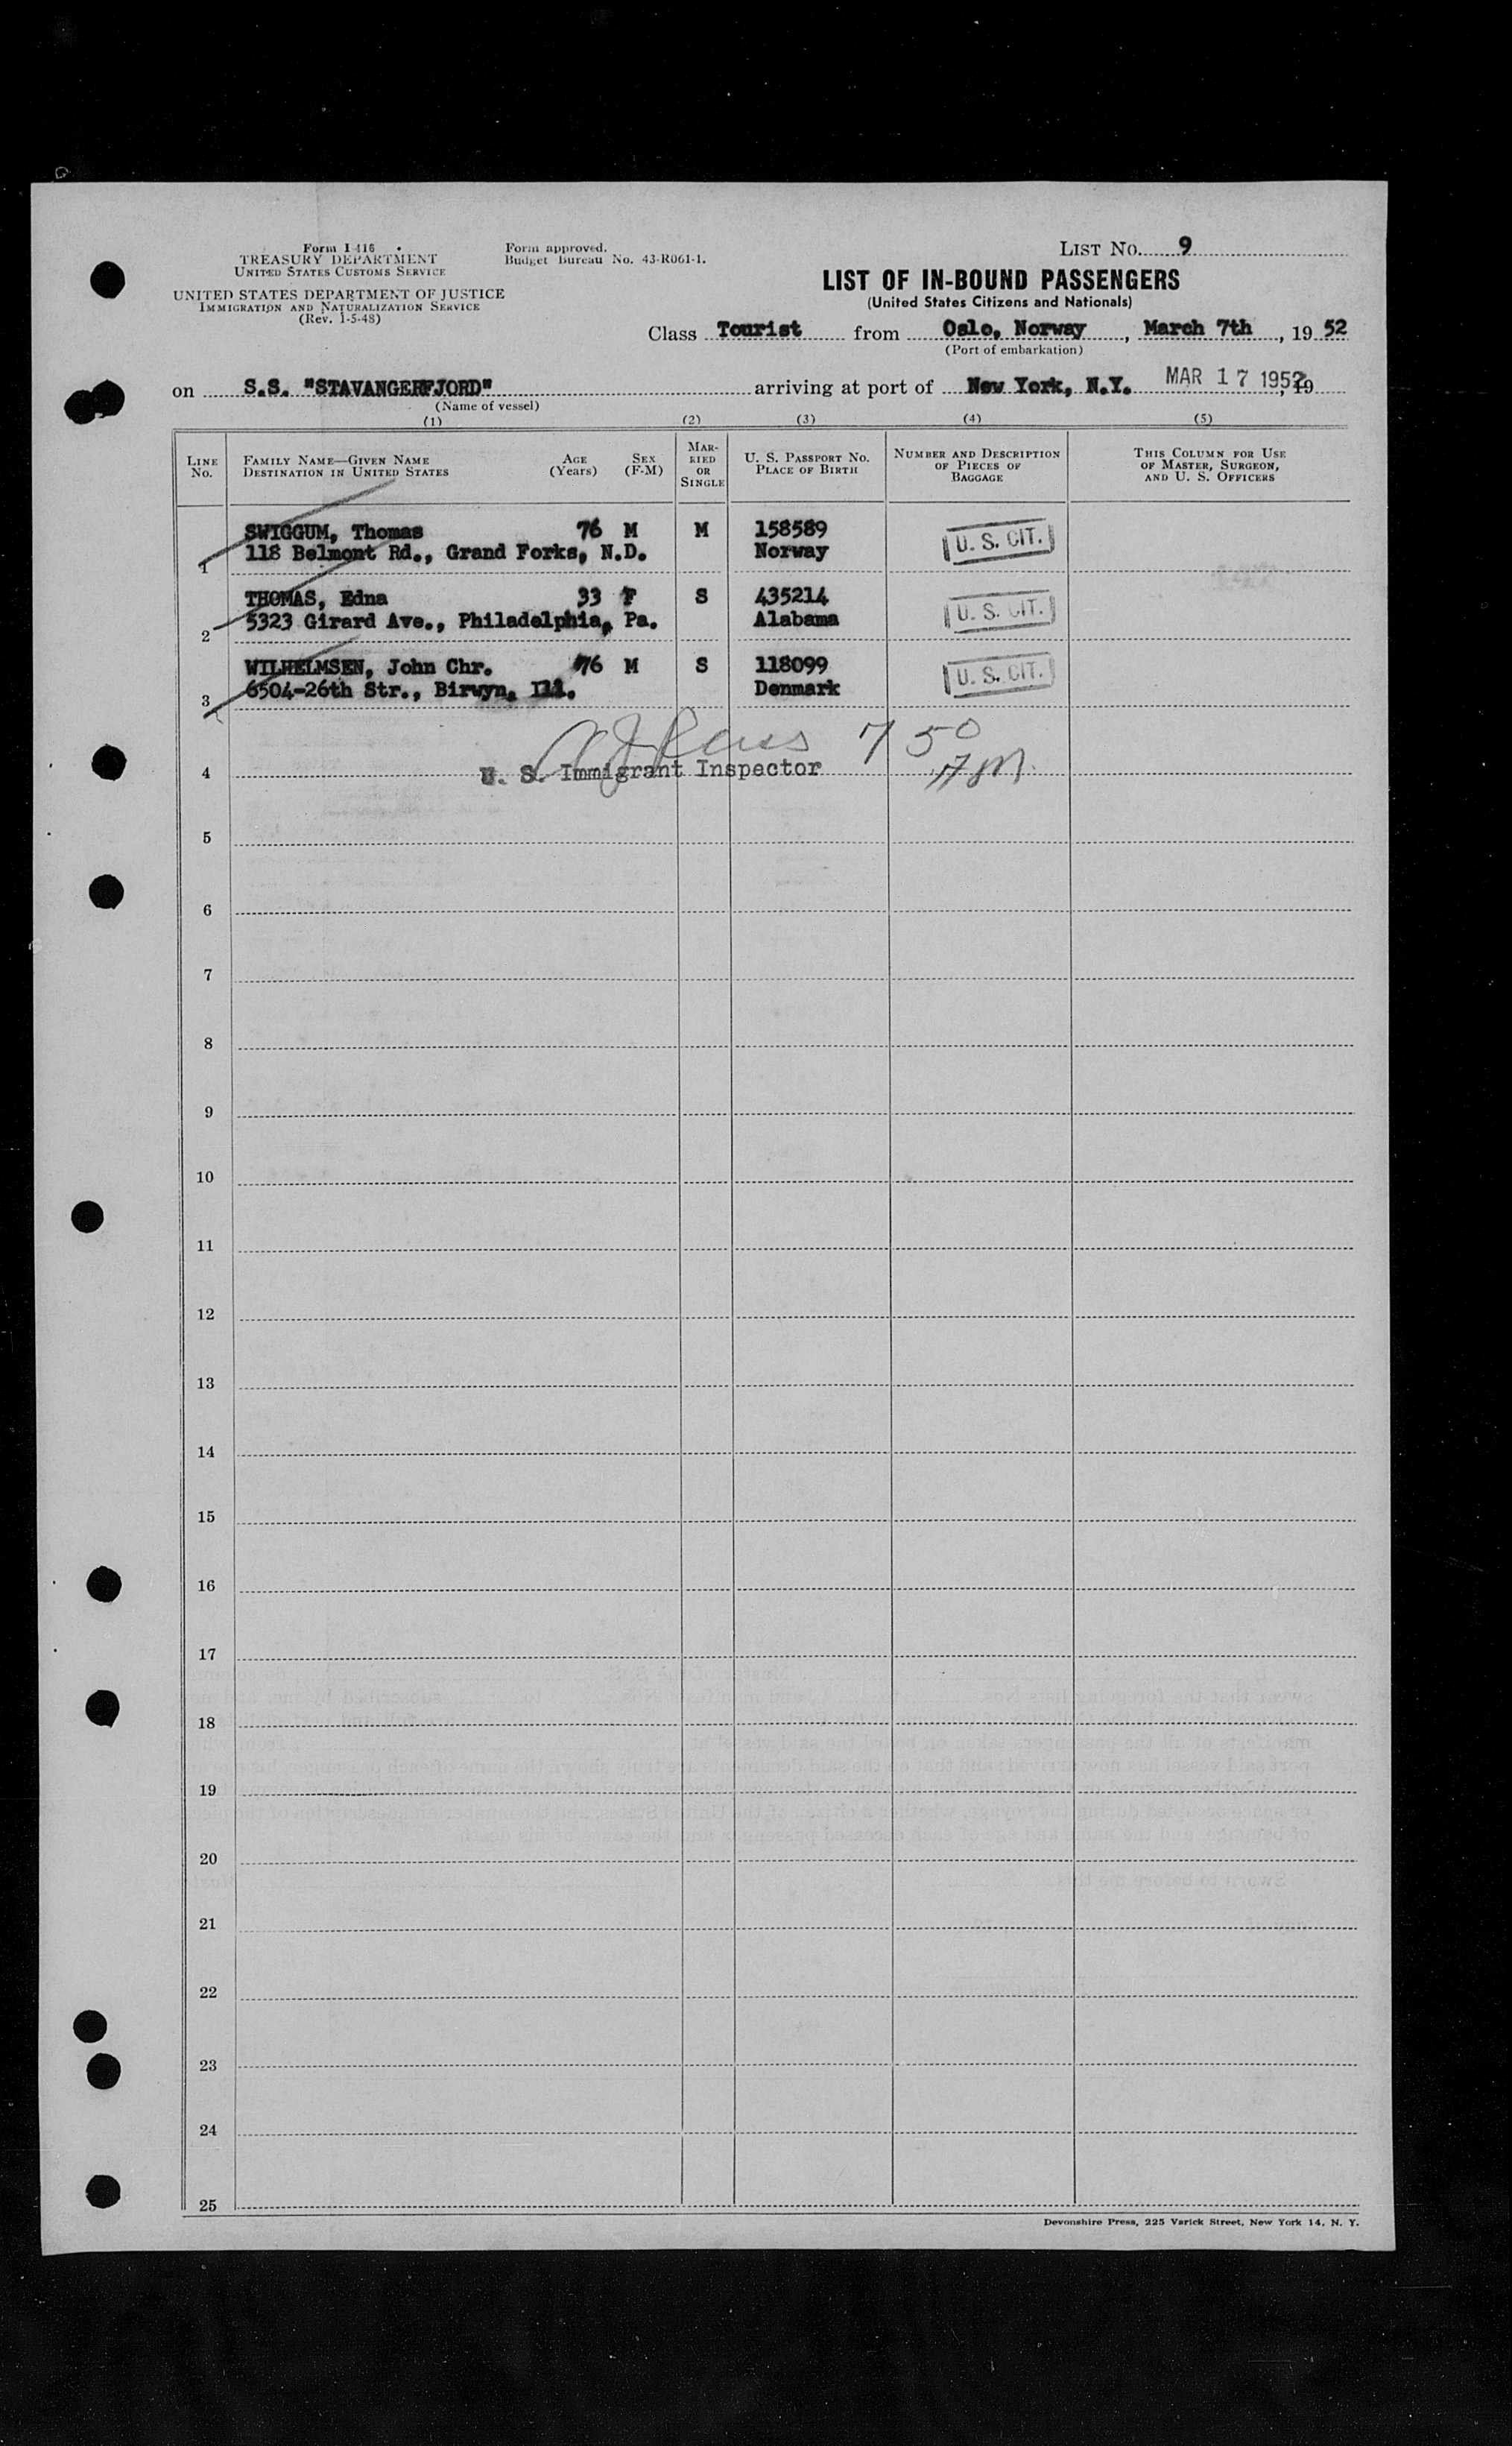 LIST NO. 9
Form I-416
TREASURY DEPARTMENT
UNITED STATES CUSTOMS SERVICE
Form approved.
Budget Bureau No. 43-R061-1.
UNITED STATES DEPARTMENT OF JUSTICE
IMMIGRATION AND NATURALIZATION SERVICE
(Rev. 1-5-48)
LIST OF IN-BOUND PASSENGERS
(United States Citizens and Nationals)
Class Tourist from Oslo, Norway, March 7th, 19 52
(Port of embarkation)
on S.S. "STAVANGERFJORD" arriving at port of New York, N.Y. MAR 17 1952, 19
(Name of vessel)
(1) (2) (3) (4) (5)
LINE No. FAMILY NAME—GIVEN NAME DESTINATION IN UNITED STATES AGE (Years) SEX (F-M) MARRIED OR SINGLE U. S. PASSPORT NO. PLACE OF BIRTH NUMBER AND DESCRIPTION OF PIECES OF BAGGAGE THIS COLUMN FOR USE OF MASTER, SURGEON, AND U. S. OFFICERS
SWIGGUM, Thomas 76 M M 158589 U. S. CIT.
1 118 Belmont Rd., Grand Forks, N.D. Norway
THOMAS, Edna 33 F S 435214 U. S. CIT.
2 5323 Girard Ave., Philadelphia, Pa. Alabama
WILHELMSEN, John Chr. 76 M S 118099 U. S. CIT.
3 6504-26th Str., Birwyn, Ill. Denmark
7 50
4 U. S. Immigrant Inspector
5
6
7
8
9
10
11
12
13
14
15
16
17
18
19
20
21
22
23
24
25
Devonshire Press, 225 Varick Street, New York 14, N. Y.